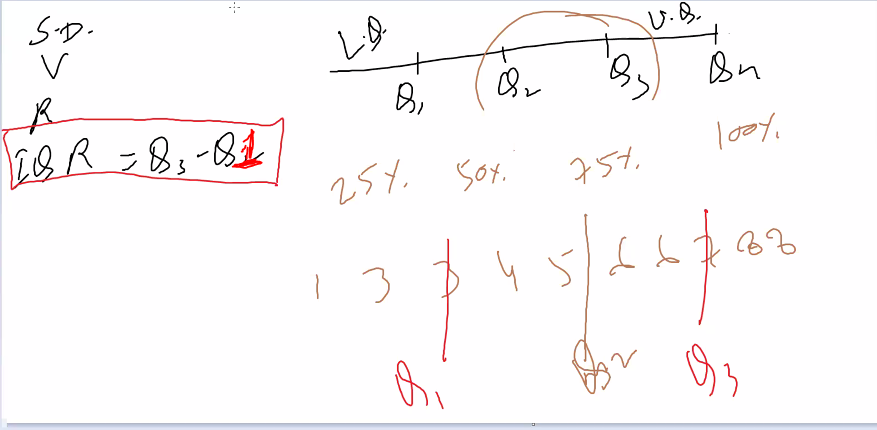 S.D.
V
R
IQR = Q3 - Q1
L.Q. U.Q.
Q1 Q2 Q3 Qn
25% 50% 75% 100%
1 3 3 4 5 6 6 7 8 8
Q1 Q2 Q3